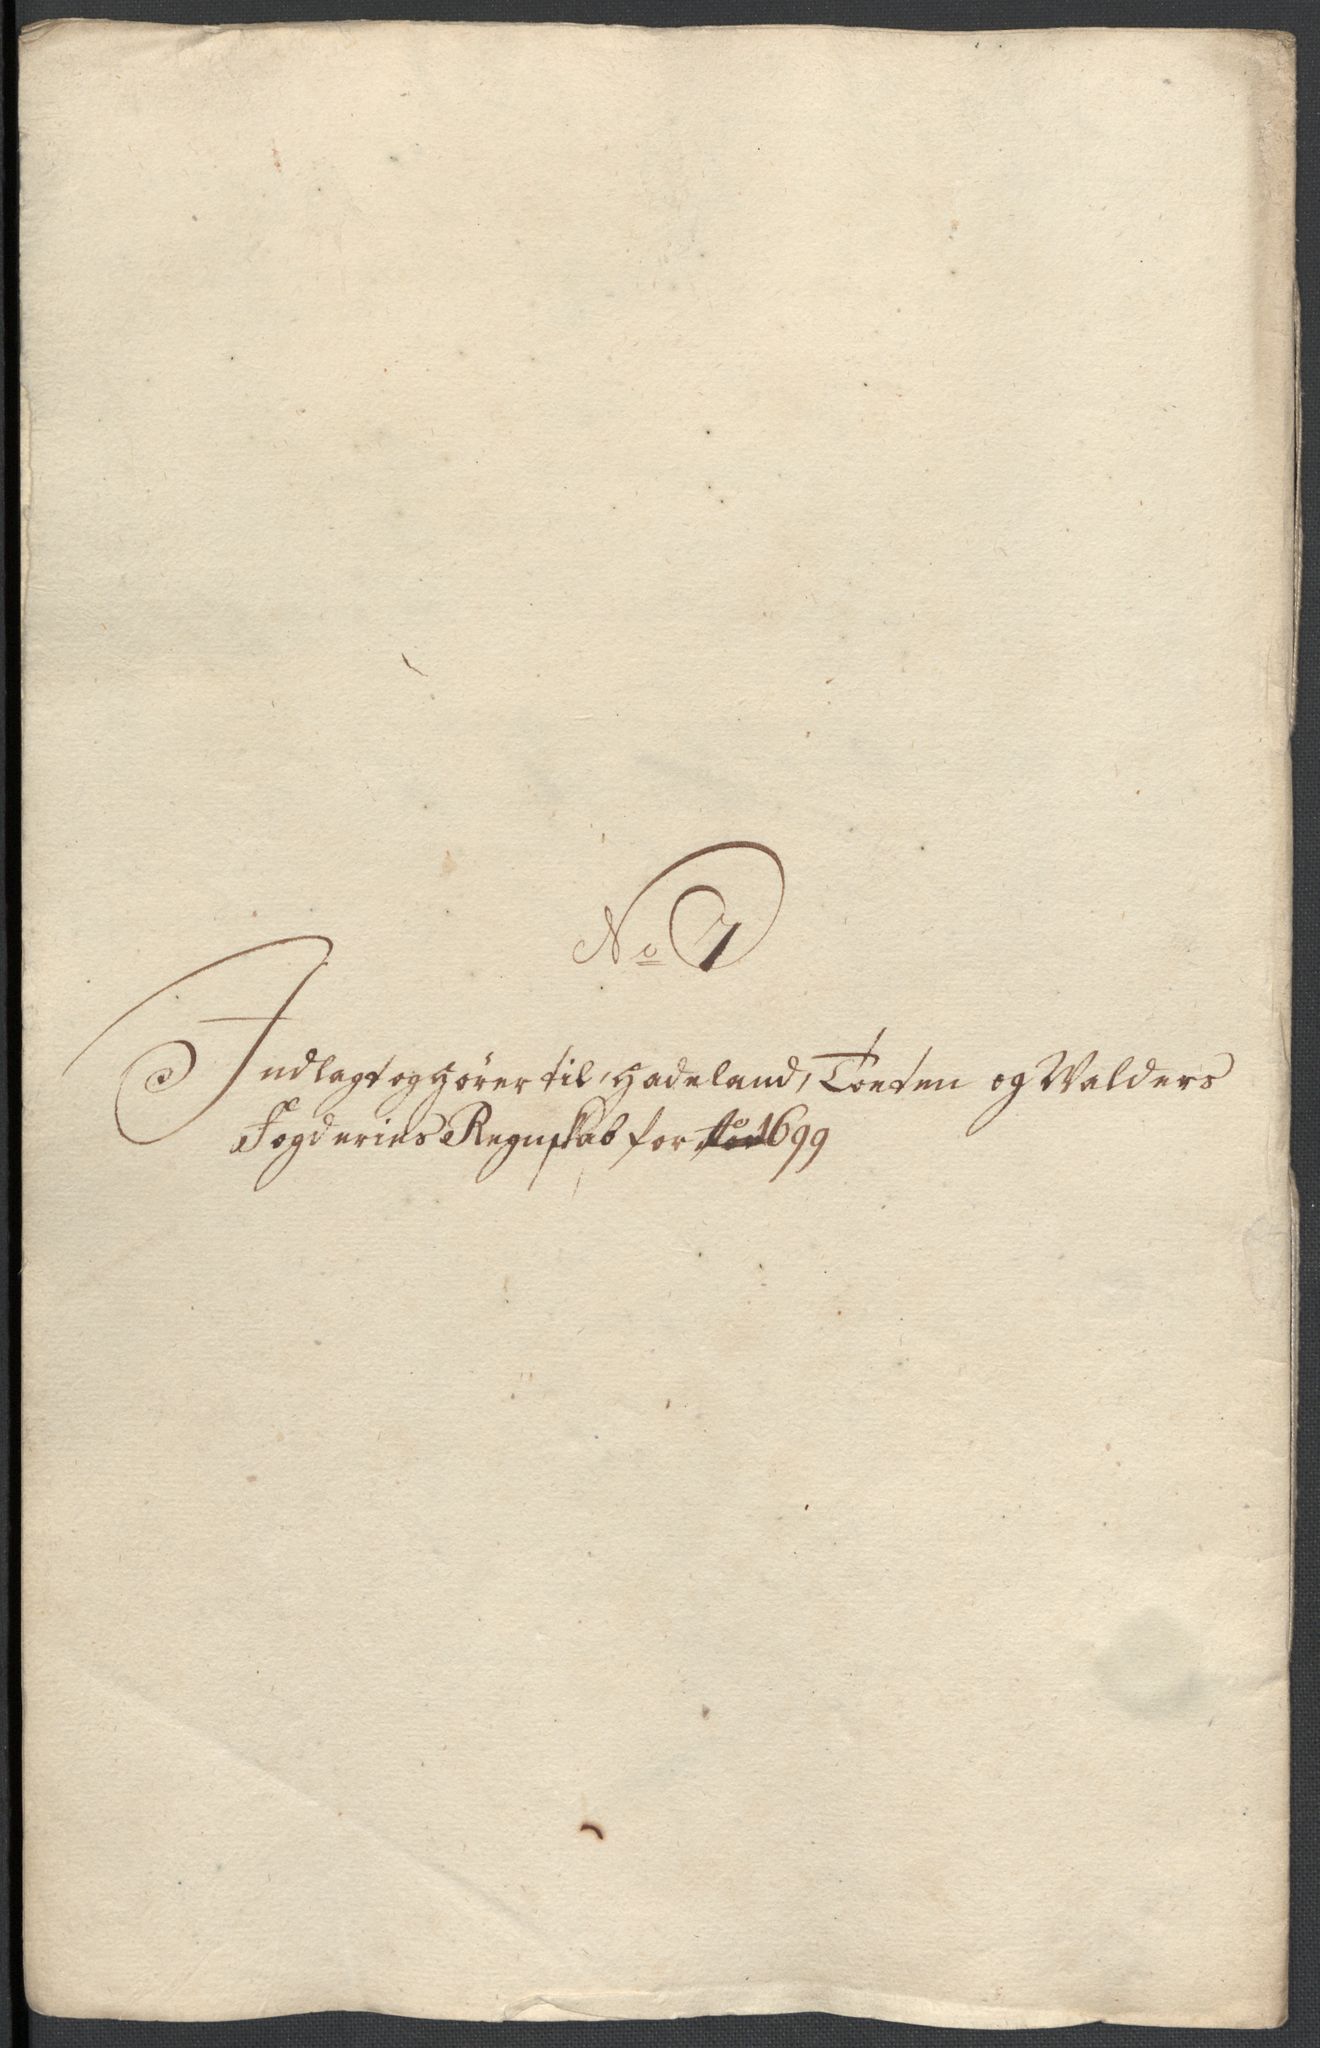 No 7
Indlagt og hører til, Hadeland, Toeten og Walders
Fogderies Regnskab for Ao 1699